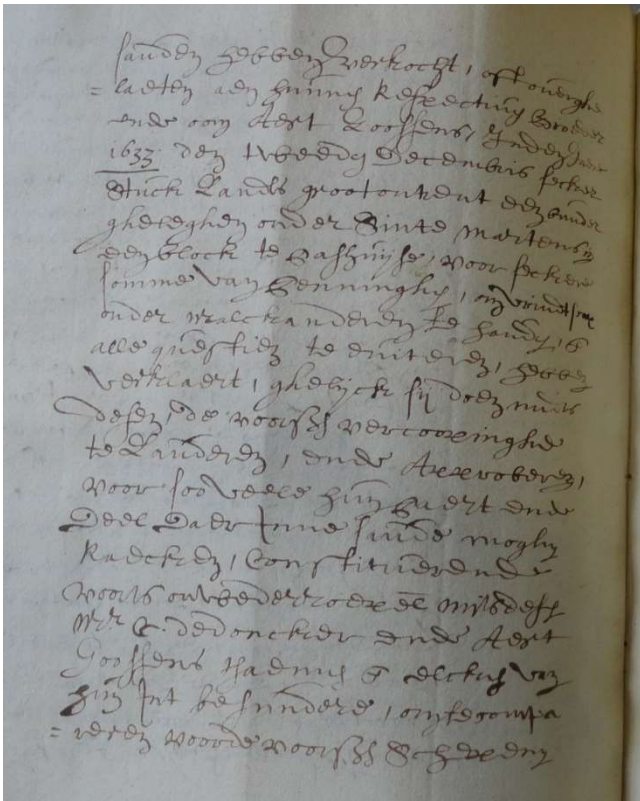 souden hebben verkocht, oft overghe
= laeten aen hunnen Respective Broeder
ende oom Aert Goossens, Inden Jaere
1633 den tweeden Decembris seker
Stuck Landts groot ontrent een bunder
gheleghen onder Sinte Martens
een block te, voor sekere
somme van penninghen, om vrintschap
onder malckanderen te houden, &
alle questien te eviteren, hebben
verklaert, ghelijck sij doen mits
desen, de voorss vercoopinghe
te Lauderen, ende Approberen,
voor soo veele hun paert ende
Deel Daer Inne soude moghen
Raecken, Constituerende
voorts onwederroepel mits desen
Mr de Doncker ende Aert
Goossens tsaemen & elcken van
hun Int besundere, om te compa
= reren voorde voorss Schepenen